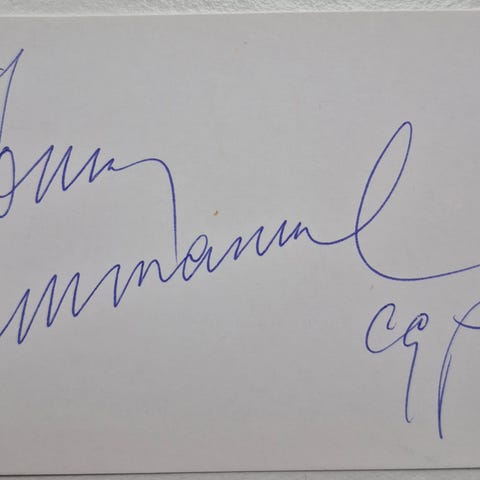 Tommy
Emmanuel
CGP